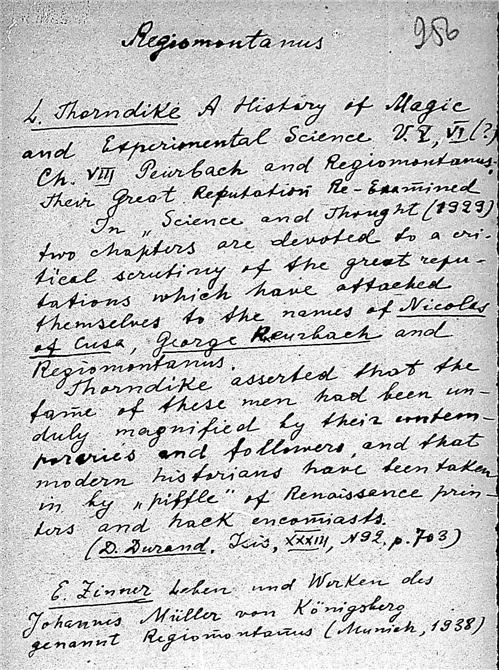 Regiomontanus 956
L. Thorndike A History of Magic
and Experimental Science V. V, VI (?)
Ch. VIII Peurbach and Regiomontanus.
Their Great Reputation Re-Examined
In „Science and Thought (1929)
two chapters are devoted to a cri-
tical scrutiny of the great repu-
tations which have attached
themselves to the names of Nicolas
of Cusa, George Peurbach and
Regiomontanus.
Thorndike asserted that the
fame of these men had been un-
duly magnified by their contem-
poraries and followers, and that
modern historians have been taken
in by „piffle" of Renaissance prin-
ters and hack encomiasts.
(D. Durand, Isis, XXXIII, N92, p. 703)
E. Zinner Leben und Wirken des
Johannes Müller von Königsberg
genannt Regiomontanus (Munich, 1938)